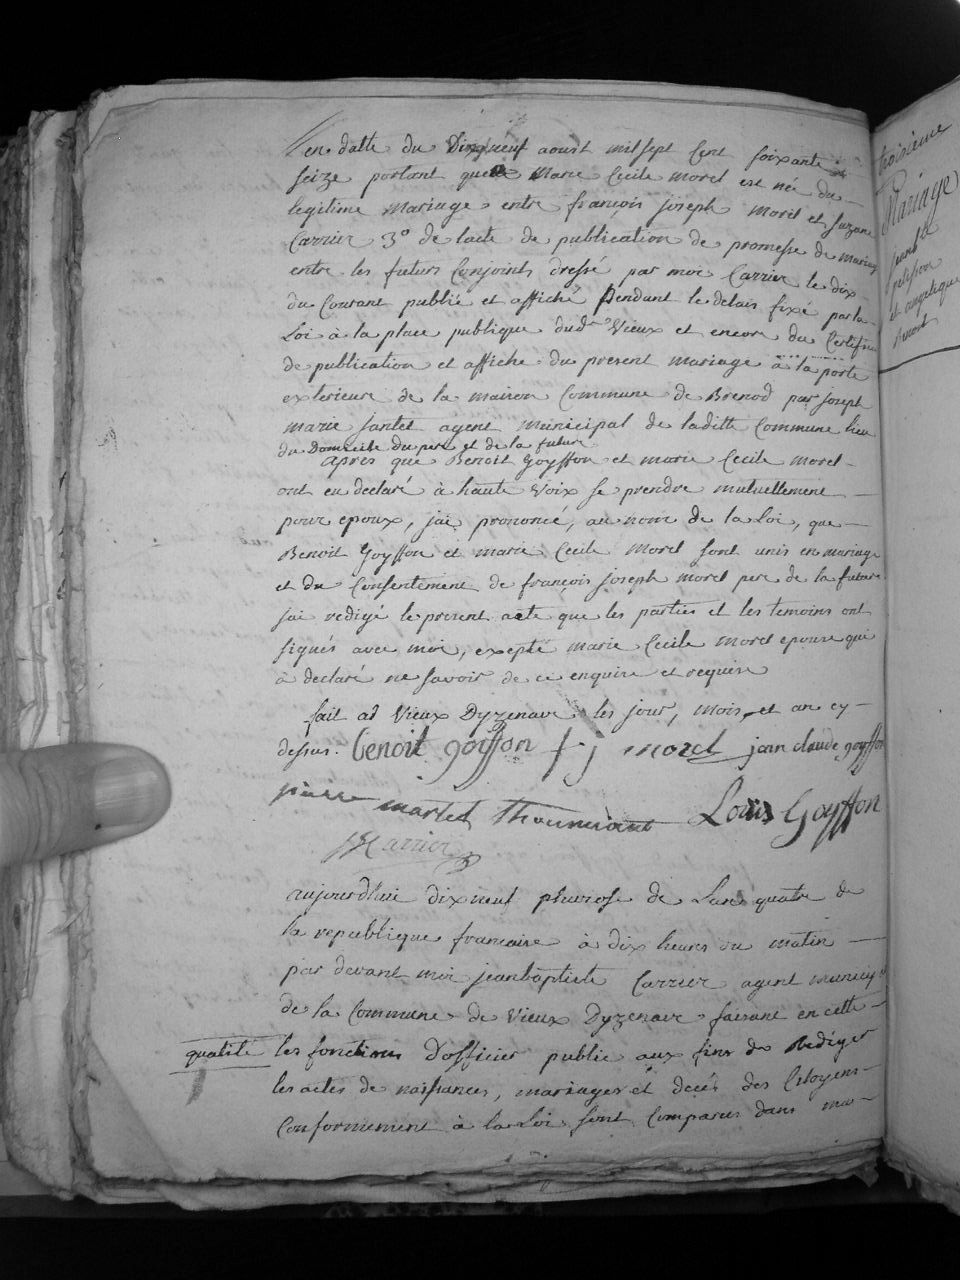 en datte du Dixneuf aoust mil sept Cent soixante
seize portant que Marie Cecile Morel est née du
legitime Mariage entre françois joseph Morel et Suzane
Carrier 3° de lacte de publication de promesse de Mariage
entre les futurs Conjoints dressé par moi Carrier le dix
du Courant publié et affiché Pendant le delais fixé par la
Loi à la place publique dud. Vieux et encore du Certificat
de publication et affiche du present mariage à la porte
exterieure de la maison Commune de Brenod par joseph
marie jantet agent municipal de laditte Commune lieu
du Domicile du pere et de la future
Apres que Benoit Goyffon et marie Cecile morel
ont eu declaré à haute Voix se prendre mutuellement
pour epoux, jai prononcé, au nom de la Loi, que
Benoit Goyffon et marie Cecile Morel sont unis en mariage
et du Consentement de françois joseph morel pere de la future
jai redigé le present acte que les parties et les temoins ont
signés avec moi, exepté marie Cecile Morel epouse qui
à declaré ne savoir de ce enquise et requise
fait ad Vieux Dyzenave les jour, Mois, et an cy
dessus. benoit goiffon f j morel jean claude goyffon
pierre martel Louis Goyffon
Carrier
aujourdhui dixneuf pluviose de Lan quatre de
la republique francaise à dix heures du matin
par devant moi jeanbaptiste Carrier agent municipal
de la Commune de Vieux Dyzenave faisant en cette
qualité les fonctions D'officier public aux fins de Rediger
les actes de naissances, mariages et decés des Citoyens
Conformement à la Loi sont Comparus dans ma
troisieme
Mariage
jean bte
pelisson
et angelique
Benoit